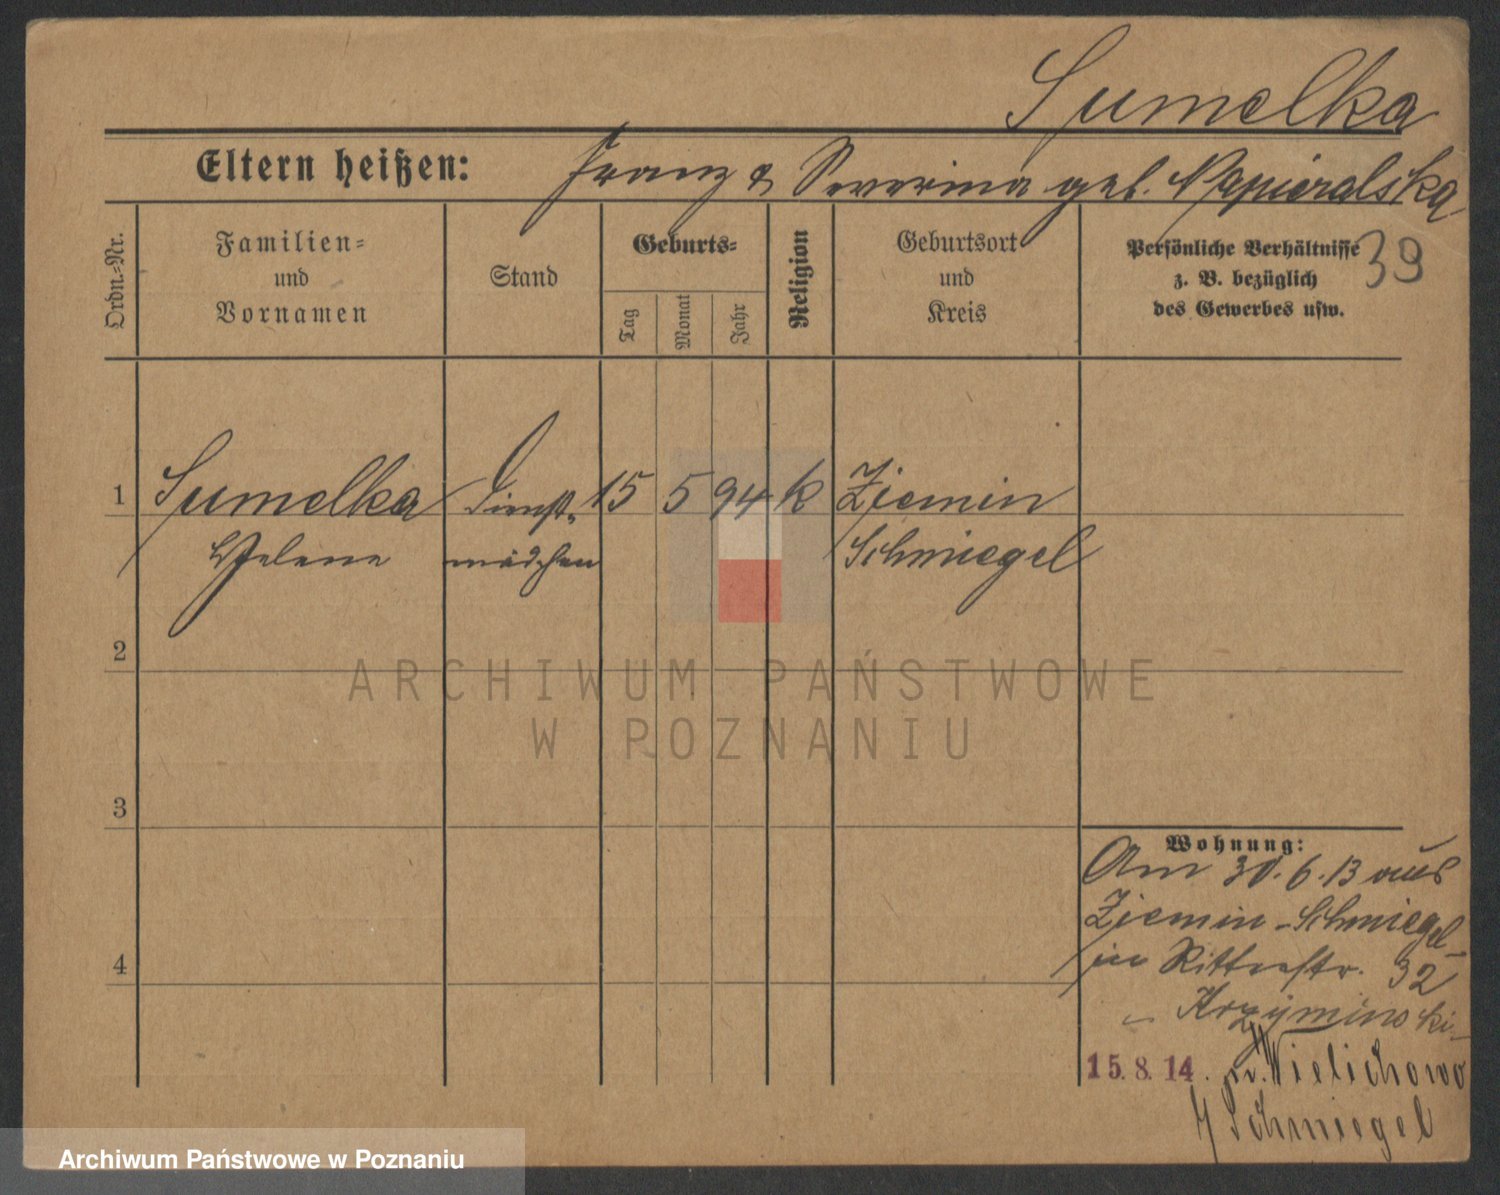 Sumelka
Eltern heißen: Franz & Severina geb. Napieralska
39
Ordn.=Nr.
Familien=
und
Vornamen
Stand
Geburts=
Tag
Monat
Jahr
Religion
Geburtsort
und
Kreis
Persönliche Verhältnisse
z. B. bezüglich
des Gewerbes usw.
1 Sumelka Dienst= 15 5 94 k Ziemin
Helene mädchen Schmiegel
2
ARCHIWUM PAŃSTWOWE
W POZNANIU
3
Wohnung:
Am 30.6.13 aus
Ziemin-Schmiegel
in Ritterstr. 32
4
Krzyminski
15.8.14. n. Wielichowo
Schmiegel
Archiwum Państwowe w Poznaniu